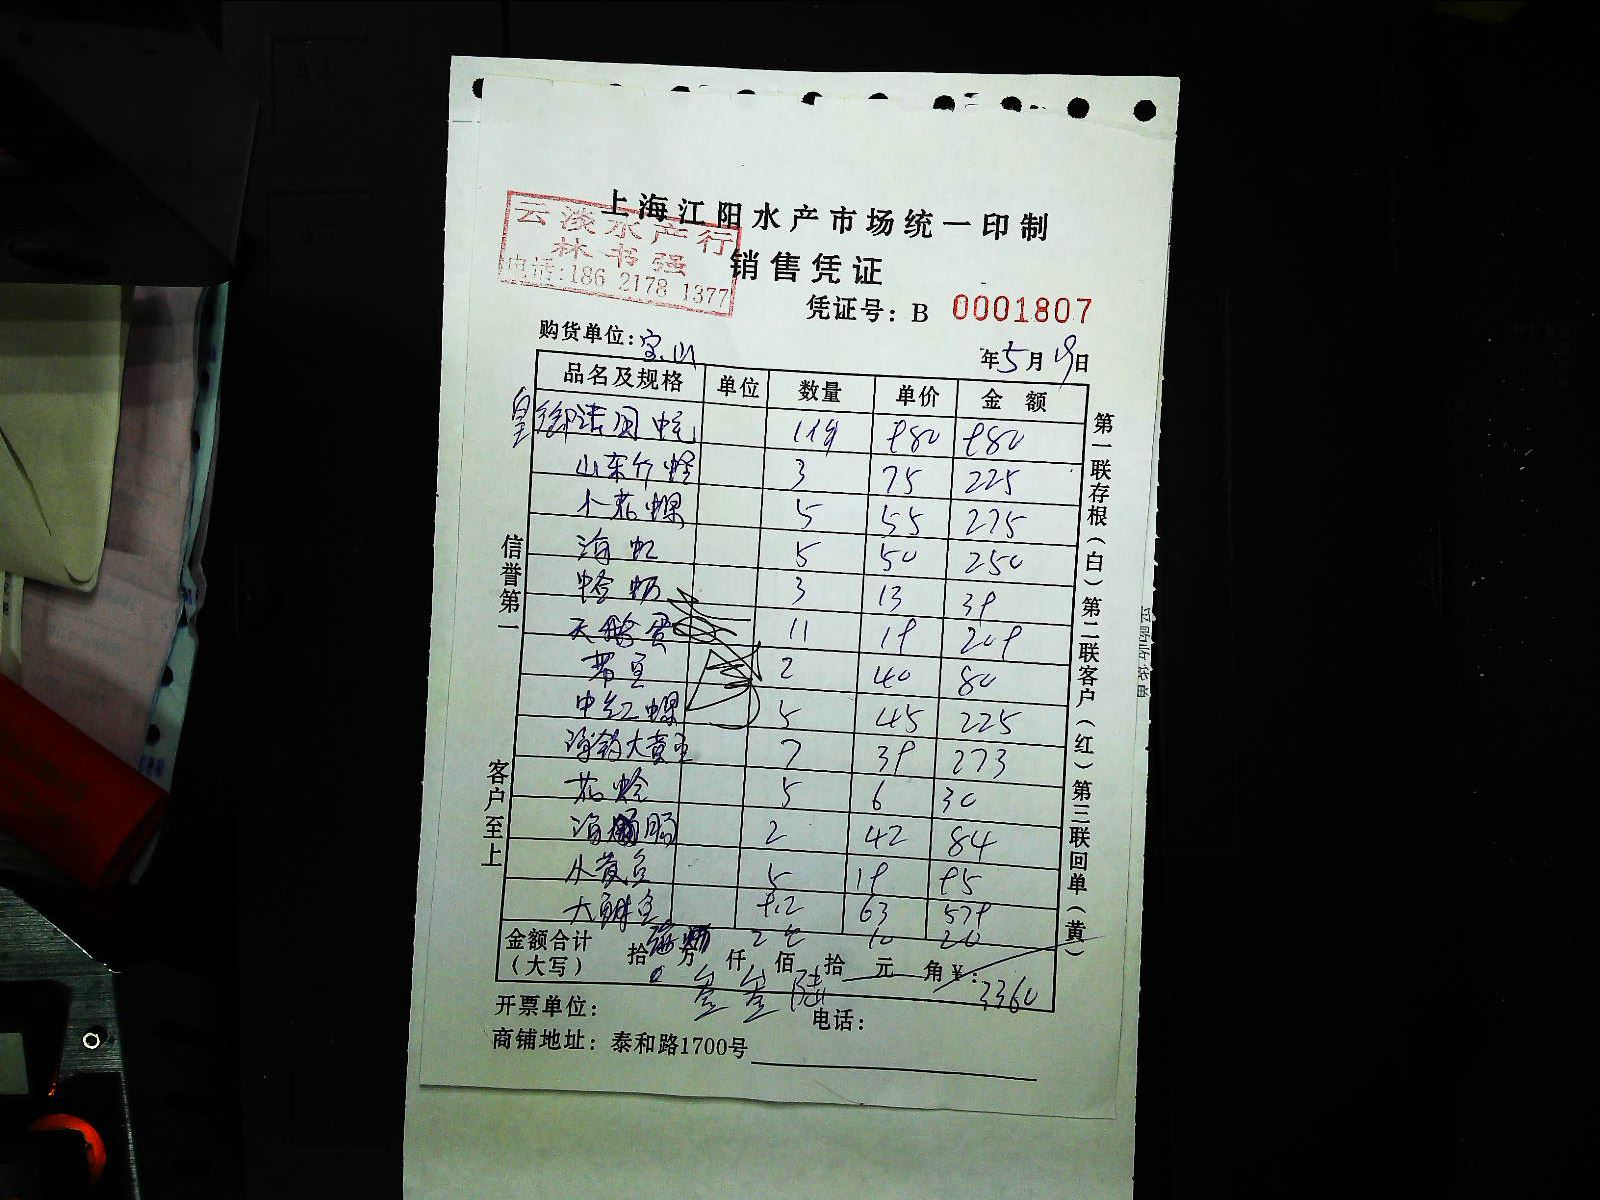 上海江阳水产市场统一印制
云淡水产行
林书强
电话:186 2178 1377
销售凭证
凭证号: B 0001807
购货单位: 宝山
年 5 月 19 日
品名及规格 单位 数量 单价 金额
皇 980 980
山东竹蛏 3 75 225
小花螺 5 55 275
海虹 5 50 250
3 13 39
天鹅蛋 11 19 209
2 40 80
中红螺 5 45 225
大黄鱼 7 39 273
花蛤 5 6 30
海肠 2 42 84
小黄鱼 5 19 95
大 9.2 63 579
2 10 20
金额合计
(大写) 拾 万 仟 佰 拾 元 角 ¥:
叁 叁 陆 3360
开票单位:
电话:
商铺地址: 泰和路1700号
信誉第一
客户至上
第一联存根(白)第二联客户(红)第三联回单(黄)